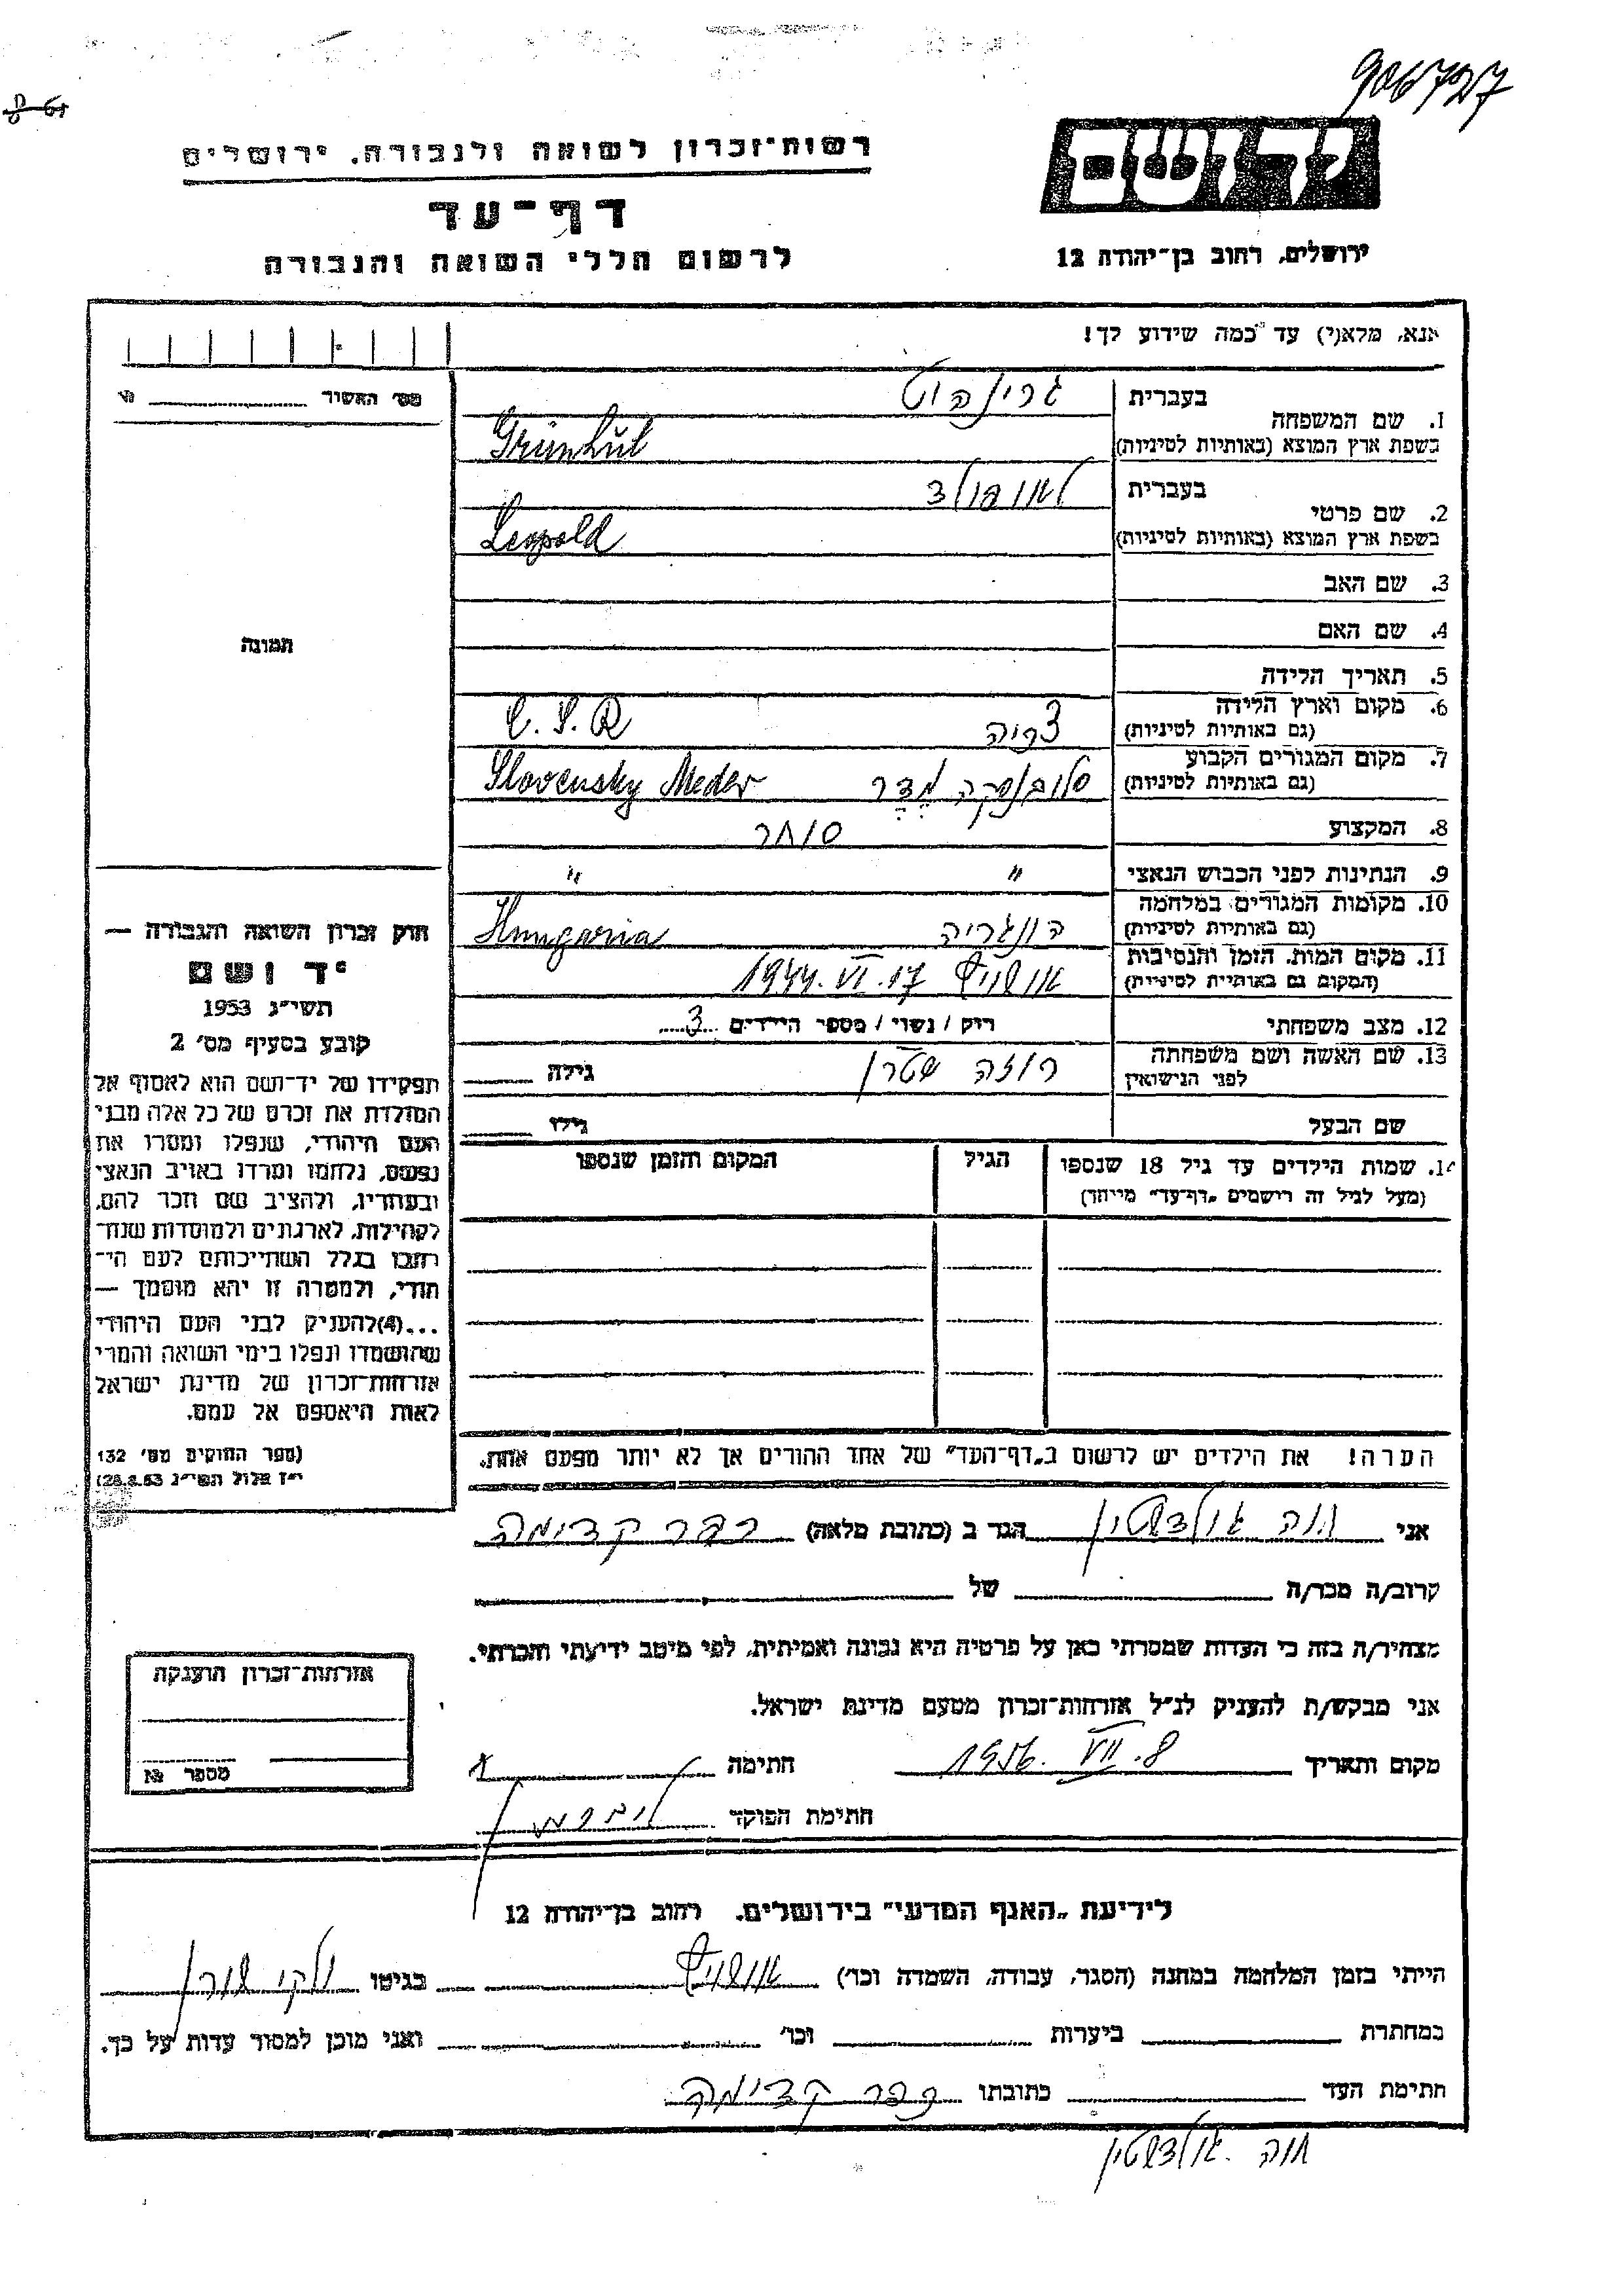 906727
רשות־זכרון לשואה ולגבורה, ירושלים
יד ושם
דף־עד
לרשום חללי השואה והגבורה
ירושלים, רחוב בן־יהודה 12
אנא, מלא(י) עד כמה שידוע לך!
מס׳ האשיר
1. שם המשפחה
בעברית גרינהוט
בשפת ארץ המוצא (באותיות לטיניות) Grünhüt
2. שם פרטי
בעברית לאופולד
בשפת ארץ המוצא (באותיות לטיניות) Leopold
3. שם האב
4. שם האם
5. תאריך הלידה
6. מקום וארץ הלידה
(גם באותיות לטיניות) צ׳כיה C.S.R
7. מקום המגורים הקבוע
(גם באותיות לטיניות) סלובנסקה מֶדֶר Slovensky Meder
8. המקצוע סוחר
9. הנתינות לפני הכבוש הנאצי " "
10. מקומות המגורים במלחמה
(גם באותיות לטיניות) הונגריה Hungaria
11. מקום המות, הזמן והנסיבות
(המקום גם באותיות לטיניות) אושויץ 17.VI.1944
12. מצב משפחתי רוק / נשוי / מספר הילדים 3
13. שם האשה ושם משפחתה
לפני הנישואין רוזה שטרן גילה
שם הבעל גילו
14. שמות הילדים עד גיל 18 שנספו הגיל המקום והזמן שנספו
(מעל לגיל זה רישמים „דף־עד" מייחד)
הערה! את הילדים יש לרשום ב„דף־העד" של אחד ההורים אך לא יותר מפעם אחת.
תמונה
חוק זכרון השואה והגבורה —
יד ושם
תשי״ג 1953
קובע בסעיף מס׳ 2
תפקידו של יד־ושם הוא לאסוף אל
המולדת את זכרם של כל אלה מבני
העם היהודי, שנפלו ומסרו את
נפשם, נלחמו ומרדו באויב הנאצי
ובעוזריו, ולהציב שם וזכר להם,
לקהילות, לארגונים ולמוסדות שנח־
רבו בגלל השתייכותם לעם הי־
הודי, ולמטרה זו יהא מוסמך —
...(4)להעניק לבני העם היהודי
שהושמדו ונפלו בימי השואה והמרי
אזרחות־זכרון של מדינת ישראל
לאות היאספם אל עמם.
(ספר החוקים מס׳ 132
י״ז אלול תשי״ג 28.8.53)
אני חוה גולדשטין הגר ב (כתובת מלאה) כפר קדימה
קרוב/ה מכר/ה של
מצהיר/ה בזה כי העדות שמסרתי כאן על פרטיה היא נכונה ואמיתית, לפי מיטב ידיעתי והכרתי.
אני מבקש/ת להעניק לנ״ל אזרחות־זכרון מטעם מדינת ישראל.
מקום ותאריך 8.VII.1956 חתימה
חתימת הפוקד
אזרחות־זכרון הוענקה
מספר
לידיעת „האגף המדעי" בירושלים, רחוב בן־יהודה 12
הייתי בזמן המלחמה במחנה (הסגר, עבודה, השמדה וכו׳) אושויץ בגיטו
במחתרת ביערות וכו׳ ואני מוכן למסור עדות על כך.
חתימת העד כתובתו כפר קדימה
חוה גולדשטין